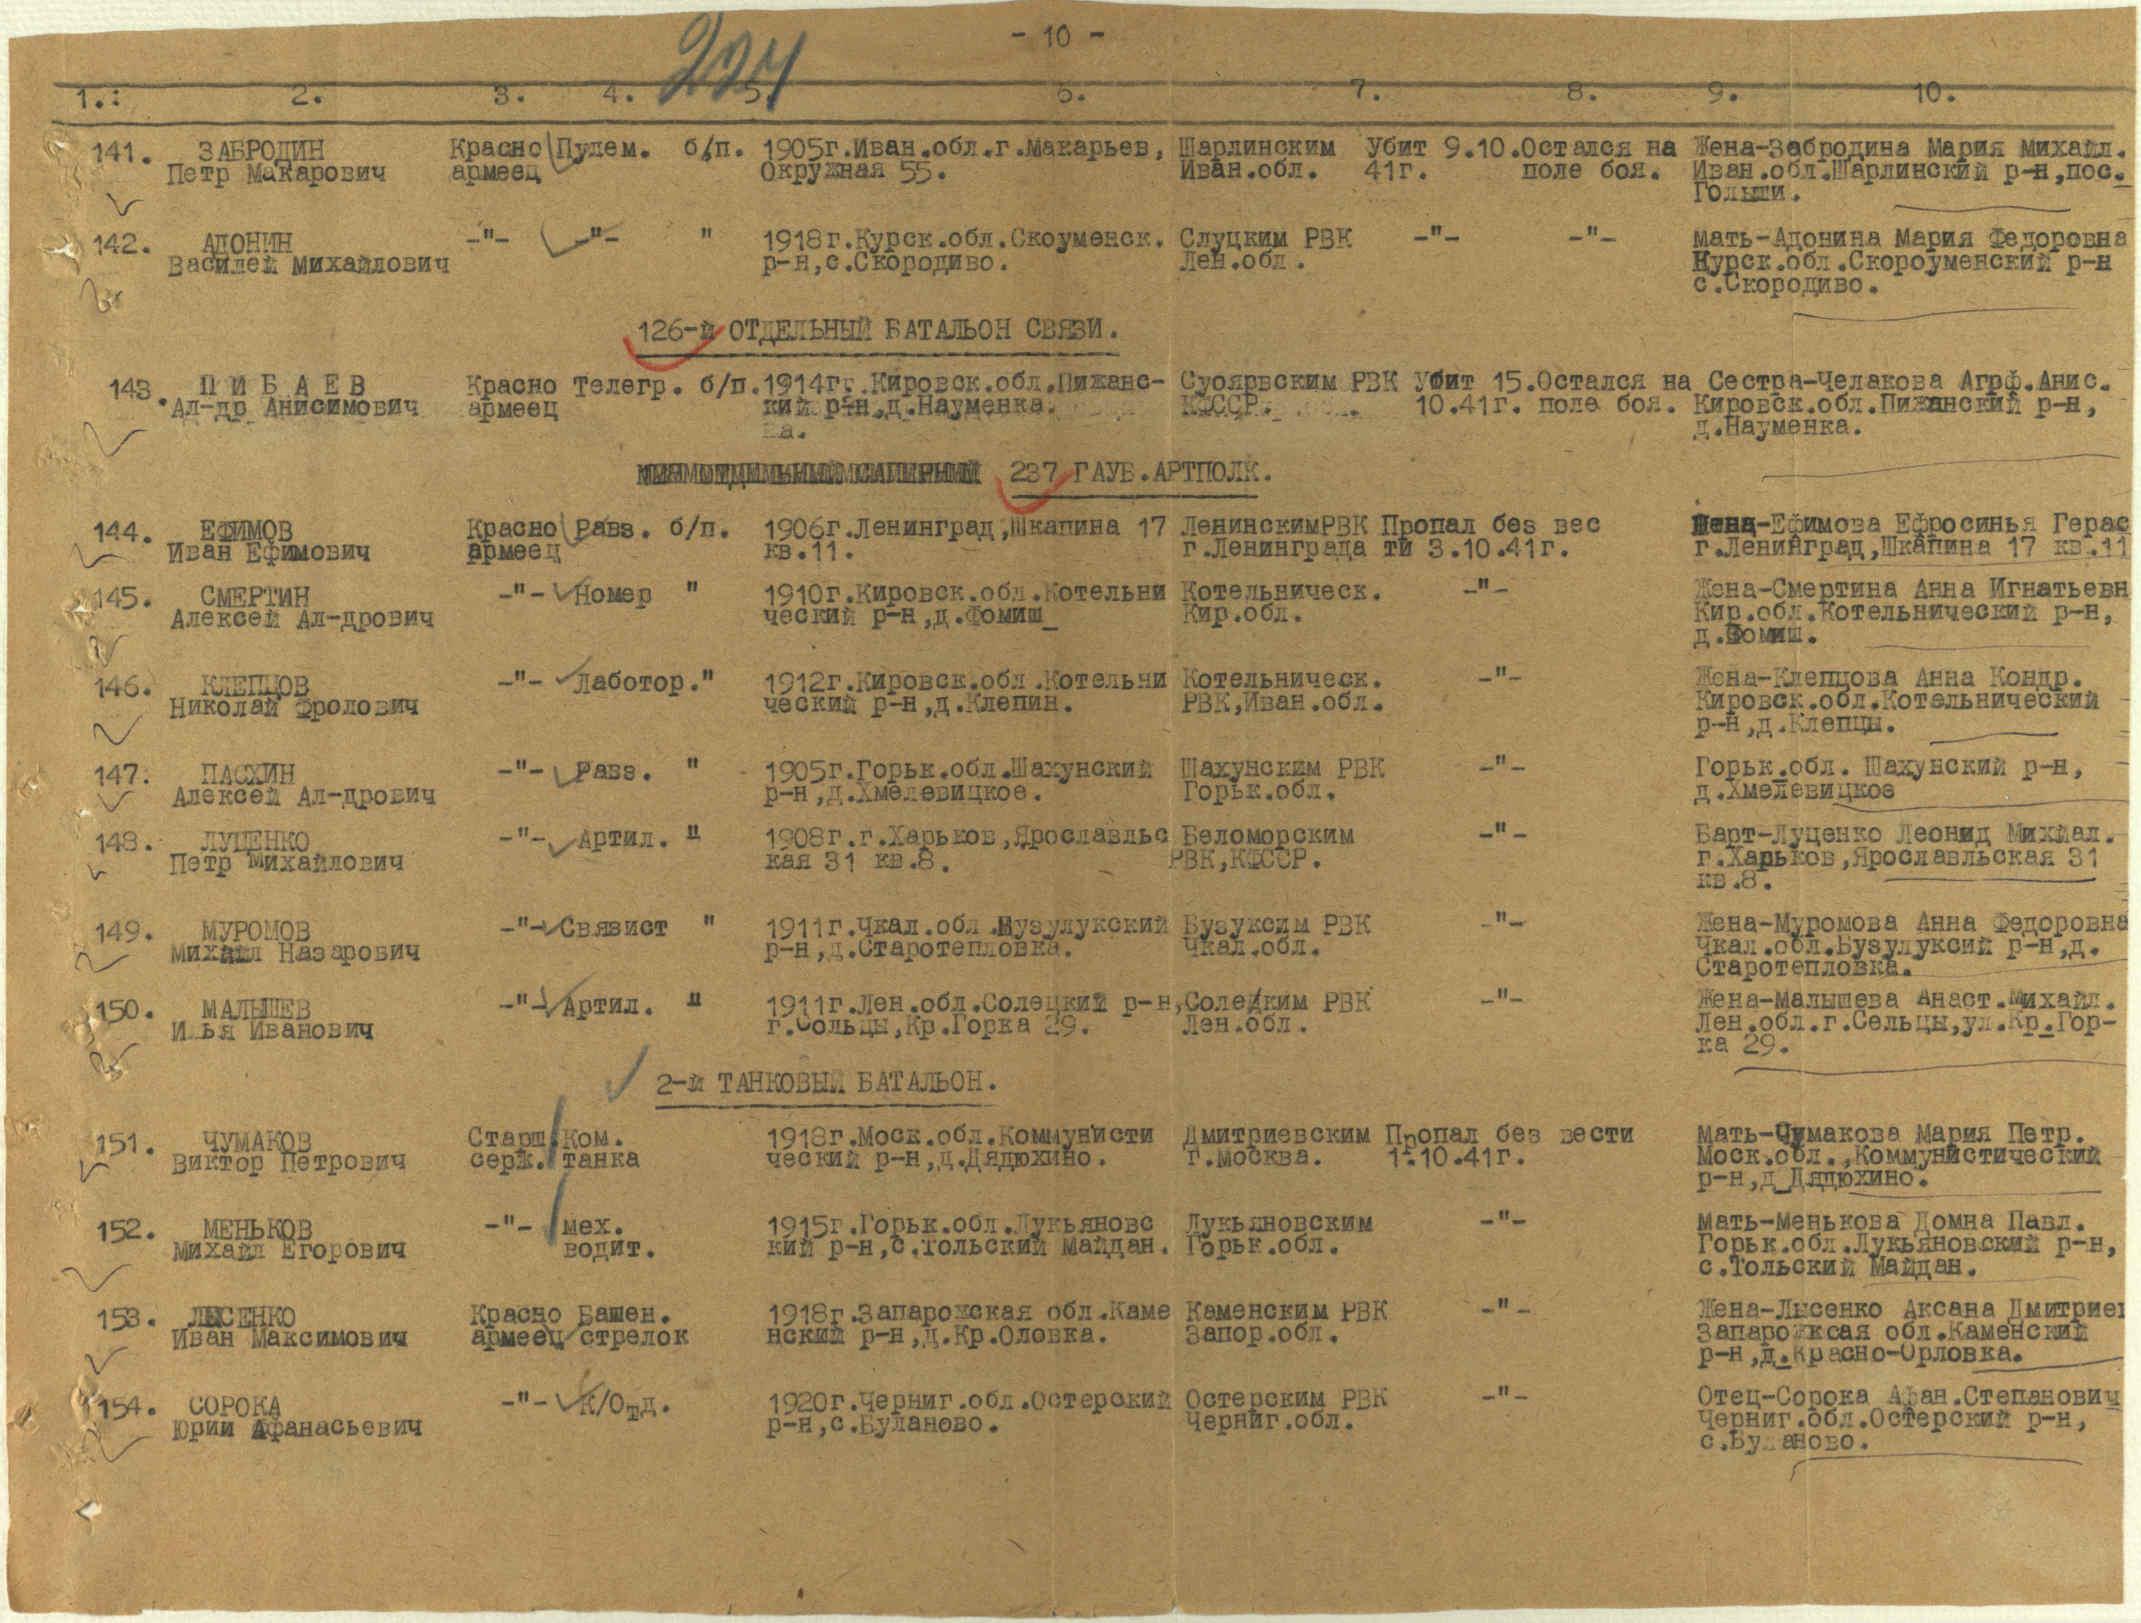 - 10 -
224
1.: 2. 3. 4. 5. 6. 7. 8. 9. 10.
141. ЗАБРОДИН Красно Пулем. б/п. 1905г.Иван.обл.г.Макарьев, Шарлинским Убит 9.10.Остался на Жена-Забродина Мария Михайл.
Петр Макарович армеец Окружная 55. Иван.обл. 41г. поле боя. Иван.обл.Шарлинский р-н,пос.
Голыши.
142. АДОНИН -"- -"- " 1918г.Курск.обл.Скоуменск. Слуцким РВК -"- -"- Мать-Адонина Мария Федоровна
Василей Михайлович р-н,с.Скородиво. Лен.обл. Курск.обл.Скороуменский р-н
с.Скородиво.
126-й ОТДЕЛЬНЫЙ БАТАЛЬОН СВЯЗИ.
143. П И Б А Е В Красно Телегр. б/п. 1914г.Кировск.обл.Пижанс- Суоярвским РВК Убит 15.Остался на Сестра-Челакова Агрф.Анис.
Ал-др Анисимович армеец кий р-н,д.Науменка. КФССР. 10.41г. поле боя. Кировск.обл.Пижанский р-н,
ка. д.Науменка.
237 ГАУБ.АРТПОЛК.
144. ЕФИМОВ Красно Разв. б/п. 1906г.Ленинград,Шкапина 17 ЛенинскимРВК Пропал без вес Жена-Ефимова Ефросинья Герас
Иван Ефимович армеец кв.11. г.Ленинграда ти 3.10.41г. г.Ленинград,Шкапина 17 кв.11
145. СМЕРТИН -"- Номер " 1910г.Кировск.обл.Котельни Котельническ. -"- Жена-Смертина Анна Игнатьевн
Алексей Ал-дрович ческий р-н,д.Фомиш_ Кир.обл. Кир.обл.Котельнический р-н,
д.Фомиш.
146. КЛЕПЦОВ -"- Лаботор." 1912г.Кировск.обл.Котельни Котельническ. -"- Жена-Клепцова Анна Кондр.
Николай Фролович ческий р-н,д.Клепин. РВК,Иван.обл. Кировск.обл.Котельнический
р-н,д.Клепцы.
147. ПАСХИН -"- Разв. " 1905г.Горьк.обл.Шахунский Шахунским РВК -"- Горьк.обл. Шахунский р-н,
Алексей Ал-дрович р-н,д.Хмелевицкое. Горьк.обл. д.Хмелевицкое
148. ЛУЦЕНКО -"- Артил. " 1908г.г.Харьков,Ярославльс Беломорским -"- Барт-Луценко Леонид Михйал.
Петр Михайлович кая 31 кв.8. РВК,КФССР. г.Харьков,Ярославльская 31
кв.8.
149. МУРОМОВ -"- Связист " 1911г.Чкал.обл.Бузулукский Бузуксим РВК -"- Жена-Муромова Анна Федоровна
Михаил Назарович р-н,д.Старотепловка. Чкал.обл. Чкал.обл.Бузулуксий р-н,д.
Старотепловка.
150. МАЛЫШЕВ -"- Артил. " 1911г.Лен.обл.Солецкий р-н, Солецким РВК -"- Жена-Малышева Анаст.Михайл.
Илья Иванович г.Сольцы,Кр.Горка 29. Лен.обл. Лен.обл.г.Сельцы,ул.Кр.Гор-
ка 29.
2-й ТАНКОВЫЙ БАТАЛЬОН.
151. ЧУМАКОВ Старш. Ком. 1918г.Моск.обл.Коммунисти Дмитриевским Пропал без вести Мать-Чумакова Мария Петр.
Виктор Петрович серж. танка ческий р-н,д.Дядюхино. г.Москва. 1.10.41г. Моск.обл.,Коммунистический
р-н,д_Дядюхино.
152. МЕНЬКОВ -"- мех. 1915г.Горьк.обл.Лукьяновс Лукьяновским -"- Мать-Менькова Домна Павл.
Михаил Егорович водит. кий р-н,с.Тольский Майдан. Горьк.обл. Горьк.обл.Лукьяновский р-н,
с.Тольский Майдан.
153. ЛЫСЕНКО Красно Башен. 1918г.Запарожская обл.Каме Каменским РВК -"- Жена-Лысенко Аксана Дмитрие
Иван Максимович армеец стрелок нский р-н,д.Кр.Оловка. Запор.обл. Запарожксая обл.Каменский
р-н,д.Красно-Орловка.
154. СОРОКА -"- К/Отд. 1920г.Черниг.обл.Остерский Остерским РВК -"- Отец-Сорока Афан.Степанович
Юрии Афанасьевич р-н,с.Буланово. Черниг.обл. Черниг.обл.Остерский р-н,
с.Буланово.